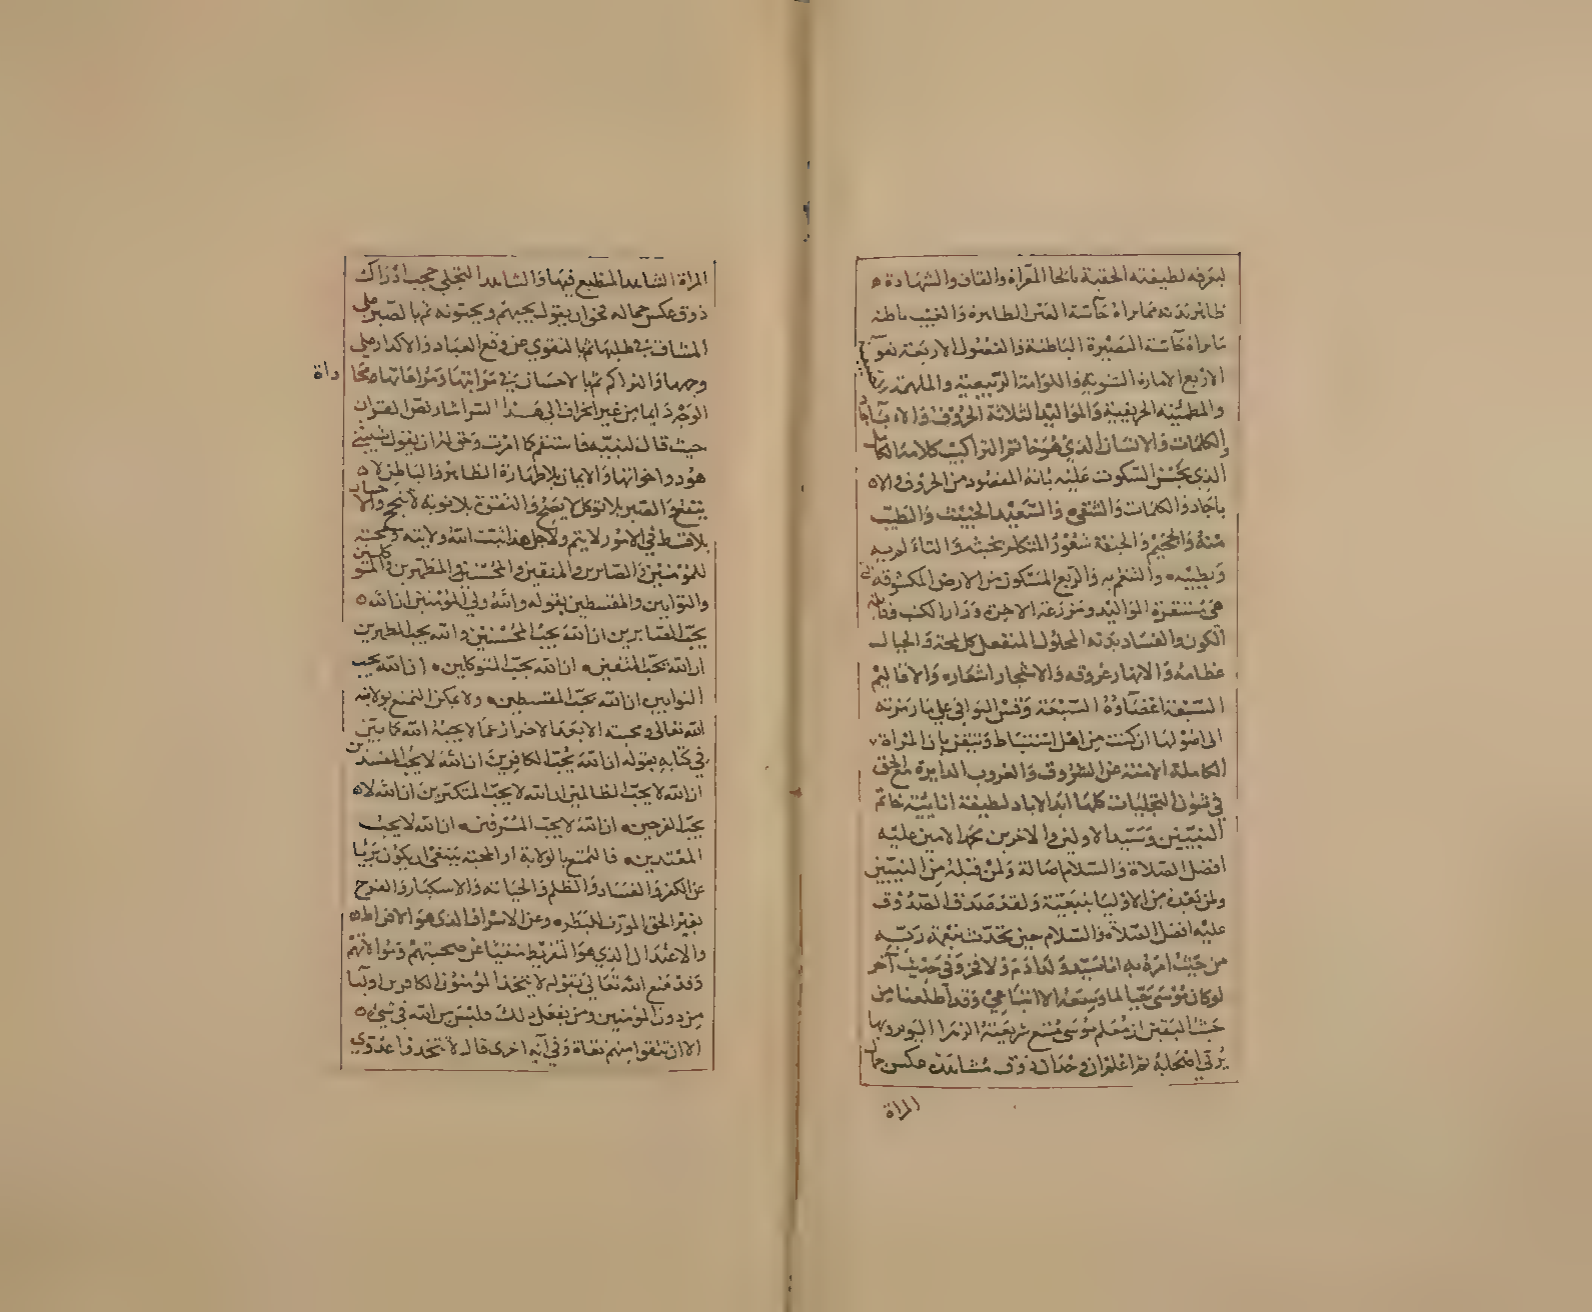 لمعرفه لطيفته الحقية بانحا المرآة والقاف والشهادة
ظاهر بدنه فما يراه حاسة العين الظاهره والغيب باطنه
ما يراه حاسة البصيرة الباطنة والفصول الاربعة نفو
الاربع الامارة الشتوية واللوامة الربيعية والملهمة
والمطمئنه الخريفية والمواليد الثلاثة الحروف والا
والكلمات والانسان الذي هو خاتم التراكيب كلامه
الذي يحسن السكوت عليه بانه المقصود من الحروف والا
باجاد والكلمات والشقي والسعيد الخبيث والطيب
منه والجحيم والجنة شعور المتكلم بخبثه والتاء لم به
وبطيبه والتنعم به والربع المسكون من الارض المكشوفة
هي مستقره المواليد ومزرعة الاخرة ودار الكتب
الكون والفساد بدنه المحلول المنفعل كل لمحة والجبال
عظامه والانهار عروقه والاشجار اشعاره والاقاليم
السبعة اعضاؤه السبعة وقس البواقي علي ما رمزته
الى اصولها ان كنت من اهل استنباط وتيقن بان المرآة
الكاملة الامنة عن الشروق والغروب الدايرة مع الحق
في شؤن التجليات كلها ابد الاباد لطيفة انانية خاتم
النبيين وسيد الاولين والاخرين محمد الامين عليه
افضل الصلاة والسلام اصالة ولمن قبله من النبيين
ولمن بعده من الاوليا بتبعيته ولقد صدق الصدوق
عليه افضل الصلاة والسلام حين تحدث بنعمة ربه
من حيث امره به انا سيد ولد ادم ولا فخر وفي حديث آخر
لو كان موسى حيا لما وسعه الا اتباعي وقد اطلعنا من
حيث اليقين ان معلم موسى متبع شريعته الزهرا
يربي اصحابه ثم اعلم ان وجدان ذوق مشاهدة عكس جمال
المرآة
المرآة الشاهد المنطبع فيها والشاهد التجلي حجب ادراك
ذوق عكس جماله فحوا ان يقول يحبهم ويحبونه ثم بالصبر على
المشاق في طلبها ثم بالتقوي عن وقع العباد والاكدار على
وجهها والتراكم ثم بالاحسان في مراتبها ومراعاتها
الوجد دايما من غير انحراف الى هذا السر اشار نص القران
حيث قال لنبيه فاستقم كما امرت وحق له ان يقول شيبتني
هود واخواتها والايمان بلا طهارة الظاهر والباطن لا
ينتفع والصبر بلا توكل لا يصح والتقوى بلا توبة لا تنجح والا
بلا قسط في الامور لا يتم ولاجل هذا اثبت الله ولايته ومحبته
للمؤمنين والصابرين والمتقين والمحسنين والمطهرين والمتو
والتوابين والمقسطين بقوله والله ولي المؤمنين ان الله
يحب الصابرين ان الله يحب المحسنين والله يحب المطهرين
ان الله يحب المتقين ان الله يحب المتوكلين ان الله يحب
التوابين ان الله يحب المقسطين ولا يمكن التمتع بولاية
الله تعالى ومحبته الا بعد الاحتراز عما لا يحبه الله كما بين
في كتابه بقوله ان الله يحب الكافرين ان الله لا يحب المفسد
ان الله لا يحب الظالمين ان الله لا يحب المتكبرين ان الله لا
يحب الفرحين ان الله لا يحب المسرفين ان الله لا يحب
المعتدين فالتمتع بالولاية او المحبة ينبغي ان يكون بريا
عن الكفر والفساد والظلم والخيانه والاستكبار والفرح
بغير الحق المورث للبطر وعن الاسراف الذي هو الافراط
والاعتدا الذي هو التفريط متقيا عن صحبتهم وموالاتهم
وقد منع الله تعالى بقوله لا يتخذ المؤمنون الكافرين اوليا
من دون المؤمنين ومن يفعل ذلك فليس من الله في شيء
الا ان تتقوا منهم تقاة وفي آية اخرى قال لا تتخذوا عدوي